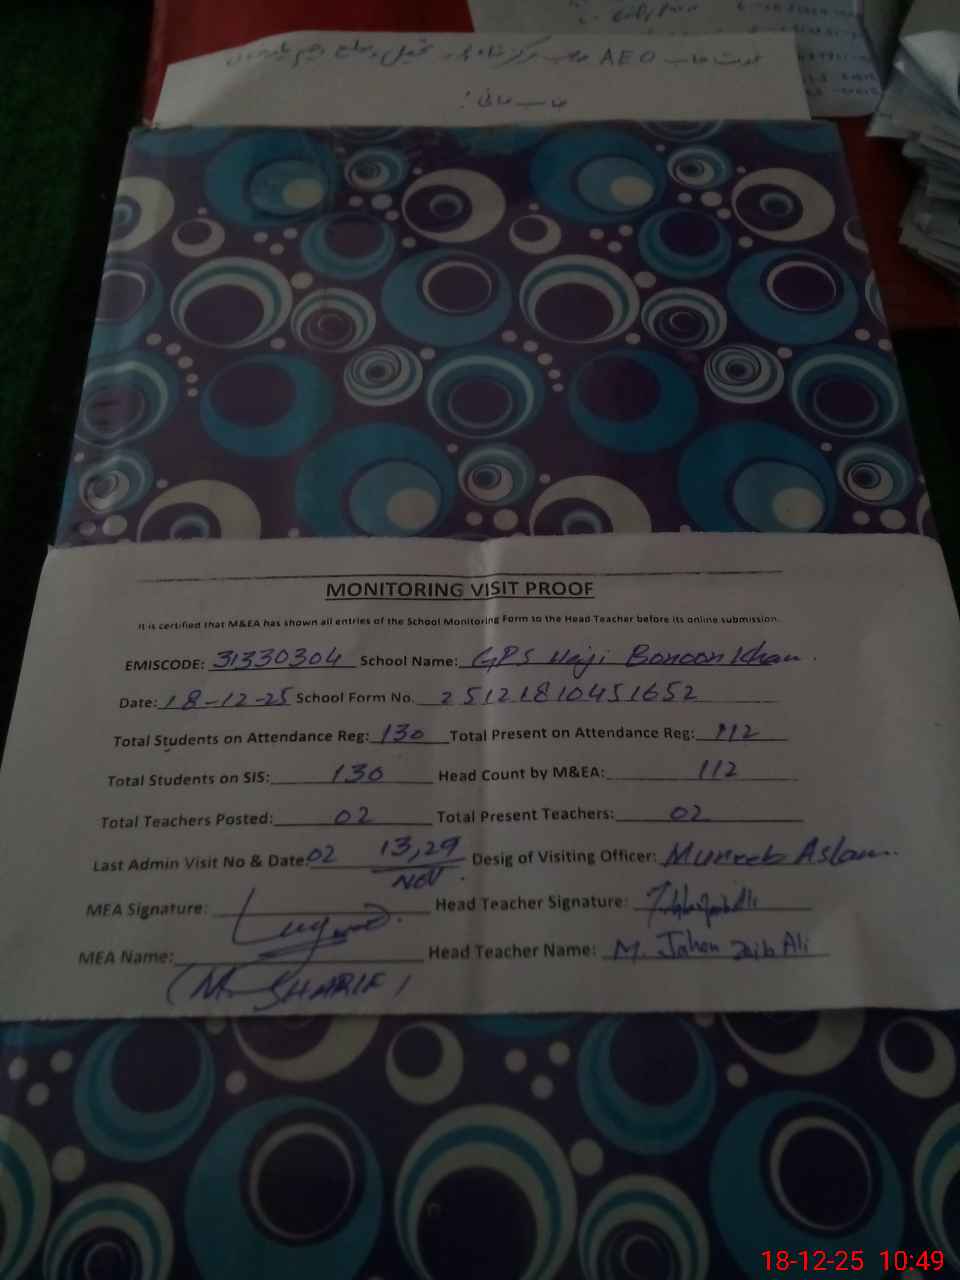 AEO
MONITORING VISIT PROOF
It is certified that M&EA has shown all entries of the School Monitoring Form to the Head Teacher before its online submission.
EMISCODE: 31330304 School Name: GPS Haji Bonoon Khan.
Date: 18-12-25 School Form No. 25121810451652
Total Students on Attendance Reg: 130 Total Present on Attendance Reg: 112
Total Students on SIS: 130 Head Count by M&EA: 112
Total Teachers Posted: 02 Total Present Teachers: 02
Last Admin Visit No & Date: 02 13,29 NOV. Desig of Visiting Officer: Muneeb Aslam.
MEA Signature: Head Teacher Signature:
MEA Name: Head Teacher Name: M. Jahan Zaib Ali
(M. SHARIF)
18-12-25 10:49